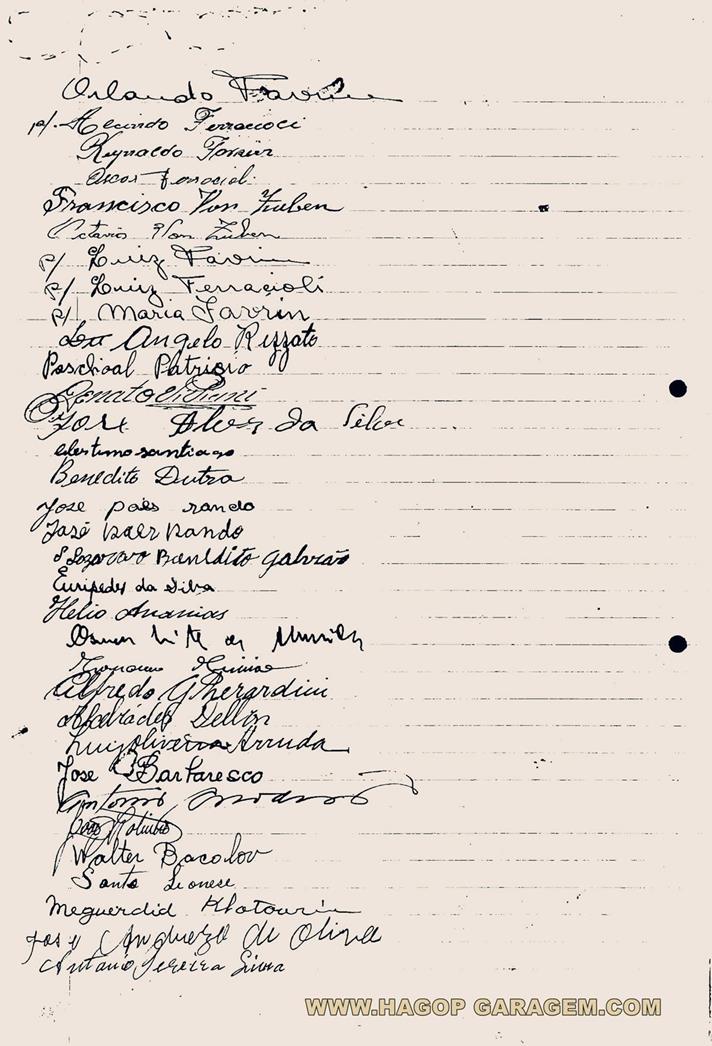 Orlando Favrin
p/. Alcindo Ferracioli
Reynaldo Favrin
Oscar
Francisco Von Zuben
Octavio Von Zuben
p/ Luiz Favrin
p/ Luiz Ferracioli
p/ Maria Favrin
Angelo Rizzato
Paschoal Patrizio
Renato
José Alves da Silva
celestimo santiago
Benedito Dutra
Jose paes rando
José Baer Rando
Benedito Galvão
Euripedes da Silva
Helio Ananias
Osmar
Alfredo Gherardini
Dellin
Luiz Oliveira Arruda
Jose Barbaresco
Antonio
João
Walter Bacolov
Santo Leonese
Meguerdid Khatourin
José de Oliva
Antonio Pereira Lima
WWW.HAGOP GARAGEM.COM